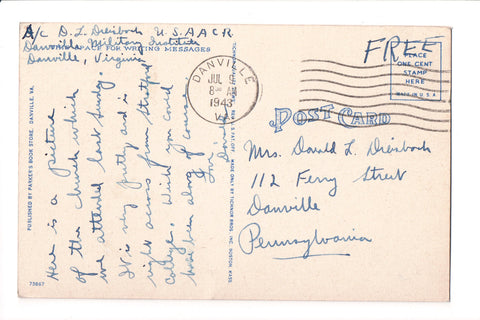 A/C D. L. Dreisbach U.S.A.A.C.R.
Danville Military Institute
SPACE FOR WRITING MESSAGES
Danville, Virginia
Here is a picture
of the church which
we attended last Sunday.
It is very pretty and is
right across from Stratford
College. Wish you could
have been along of course.
Love,
PUBLISHED BY PARKER'S BOOK STORE, DANVILLE, VA.
73667
MADE ONLY BY TICHNOR BROS. INC. BOSTON MASS.
DANVILLE
JUL
8 AM
1943
VA.
FREE
PLACE
ONE CENT
STAMP
HERE
MADE IN U.S.A.
POST CARD
Mrs. Donald L. Dreisbach
112 Ferry Street
Danville
Pennsylvania